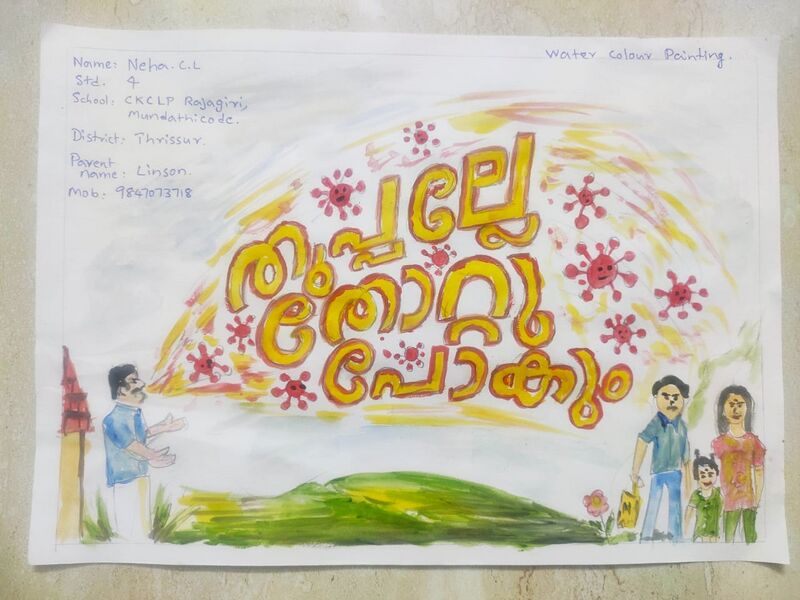 Name: Neha. C. L
Std. 4
School: CKCLP Rajagiri,
Mundathicode.
District: Thrissur.
Parent
name: Linson.
Mob: 9847073718
Water Colour Painting.
തുപ്പല്ലേ
തോറ്റു
പോകും
N